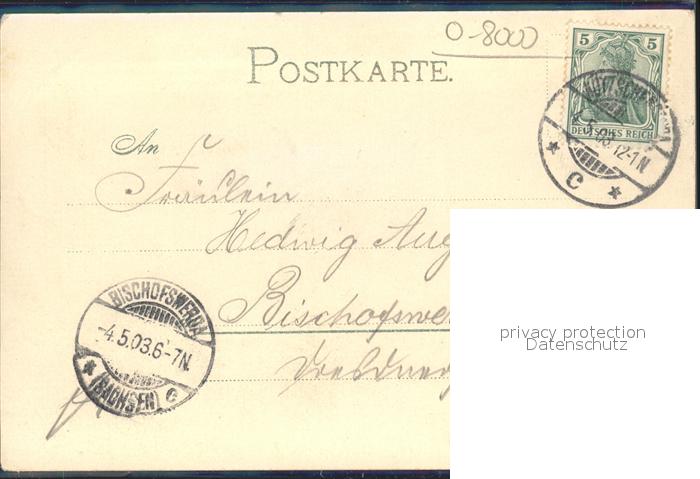 0-8000
POSTKARTE.
5 5
DEUTSCHES REICH
5.03.12-1N
C
An
Fräulein
Hedwig Aug
Bischofswe
Dresdner
BISCHOFSWERDA
-4.5.03.6-7N.
(SACHSEN) c
privacy protection
Datenschutz